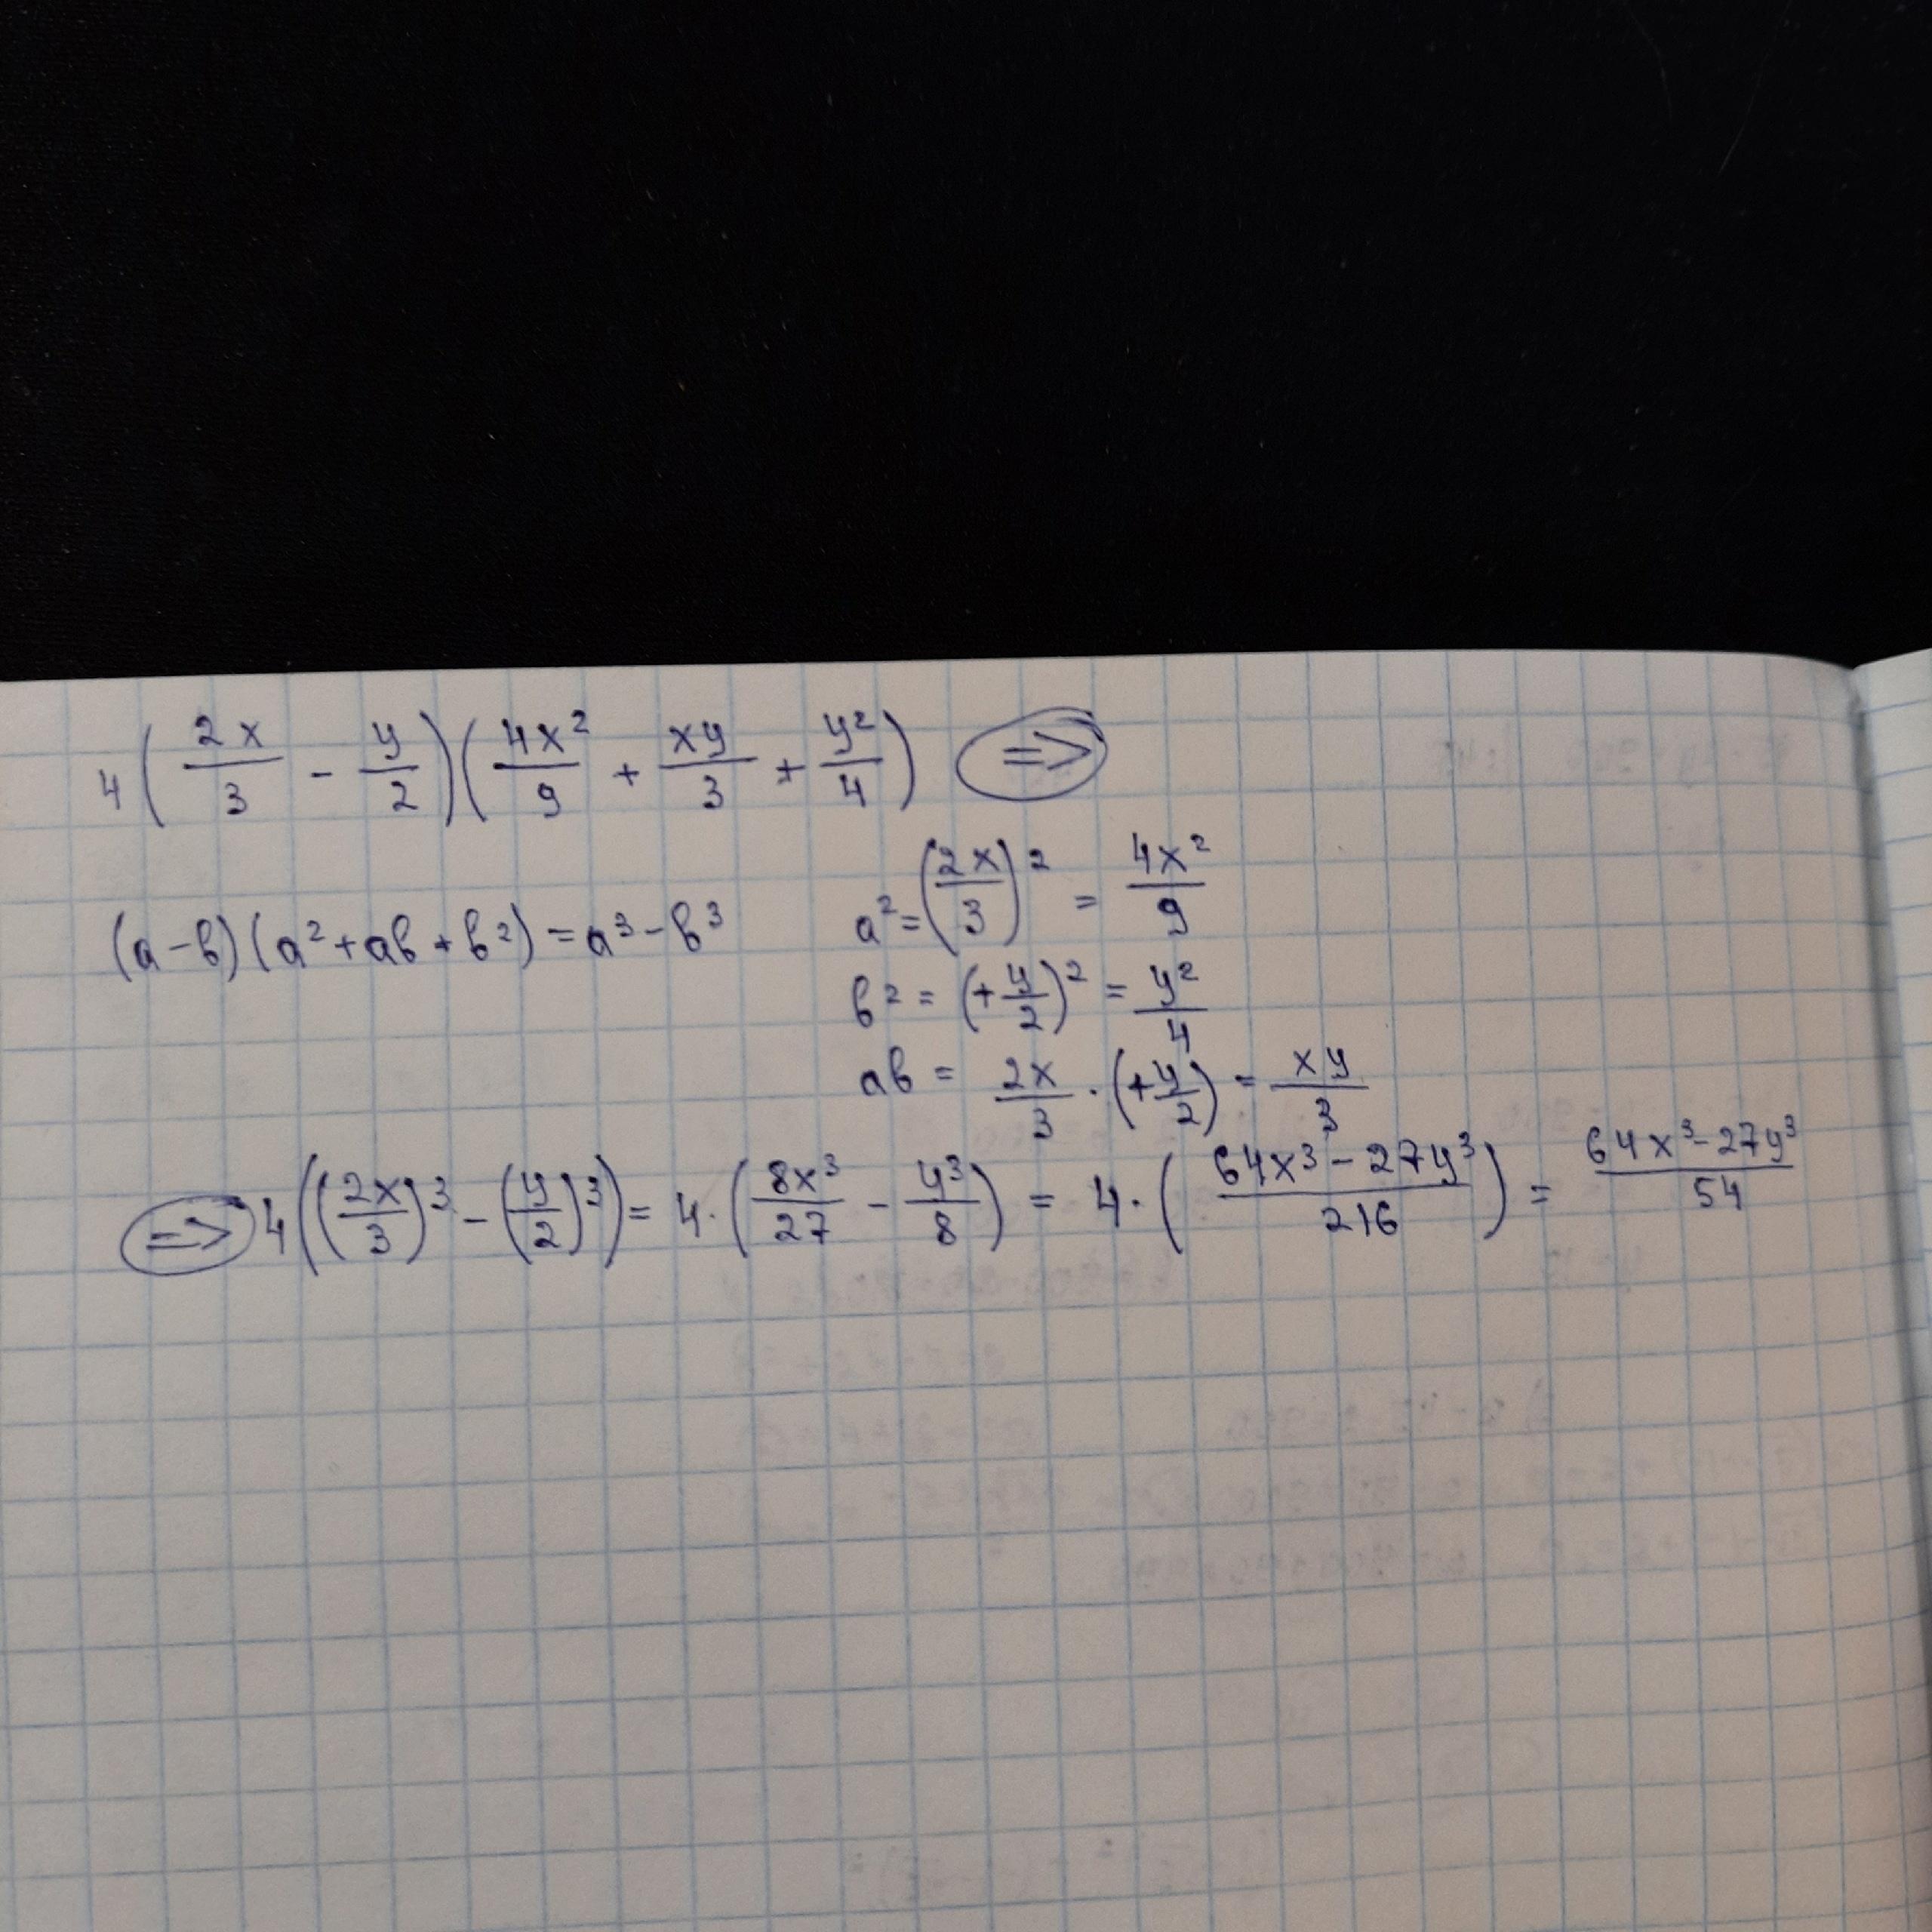 4(2x/3 - y/2)(4x²/9 + xy/3 + y²/4) ⇒
(a-b)(a²+ab+b²)=a³-b³
a²=(2x/3)² = 4x²/9
b² = (+y/2)² = y²/4
ab = 2x/3 · (+y/2) = xy/3
⇒ 4((2x/3)³ - (y/2)³) = 4·(8x³/27 - y³/8) = 4·((64x³-27y³)/216) = (64x³-27y³)/54